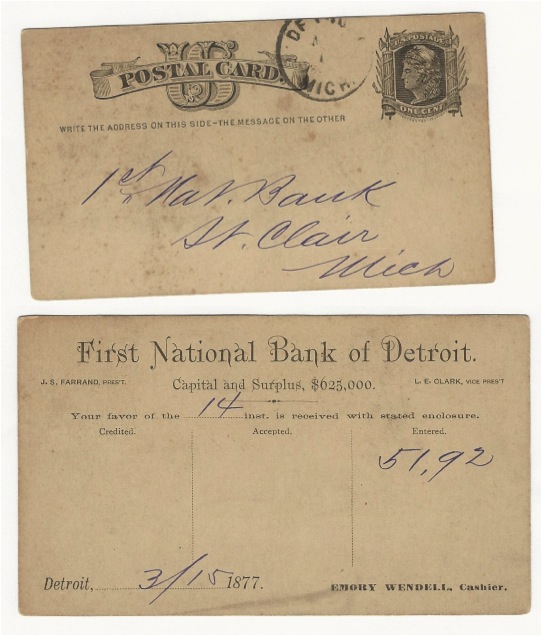 US
POSTAL CARD.
MICH.
U.S. POSTAGE
ONE CENT
WRITE THE ADDRESS ON THIS SIDE-THE MESSAGE ON THE OTHER
1st Nat. Bank
St. Clair
Mich
First National Bank of Detroit.
J. S. FARRAND, PRES'T. Capital and Surplus, $625,000. L. E. CLARK, VICE PRES'T
Your favor of the 14 inst. is received with stated enclosure.
Credited. Accepted. Entered.
51,92
Detroit, 3/15 1877. EMORY WENDELL, Cashier.